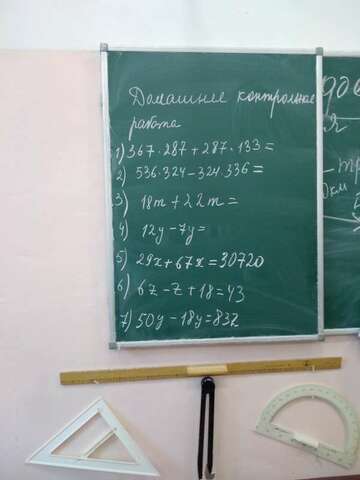 Домашнее контрольная
работа
1) 367·287+287·133=
2) 536·324-324·336=
3) 18m+22m=
4) 12y-7y=
5) 29x+67x=30720
6) 6z-z+18=43
7) 50y-18y=832